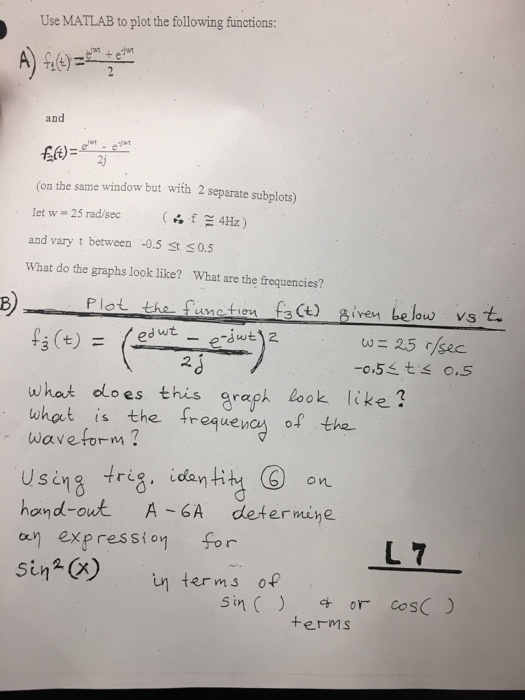 Use MATLAB to plot the following functions:
A) f₁(t) = (e^jwt + e^-jwt) / 2
and
f₂(t) = (e^jwt - e^-jwt) / 2j
(on the same window but with 2 separate subplots)
let w = 25 rad/sec (∴ f ≅ 4Hz)
and vary t between -0.5 ≤t ≤0.5
What do the graphs look like? What are the frequencies?
B) Plot the function f₃(t) given below vs t.
f₃(t) = ((e^jwt - e^-jwt) / 2j)² w = 25 r/sec
-0.5≤t≤0.5
What does this graph look like?
What is the frequency of the
waveform?
Using trig. identity ⑥ on
hand-out A-6A determine
an expression for
L7
sin²(x) in terms of
sin( ) & or cos( )
terms